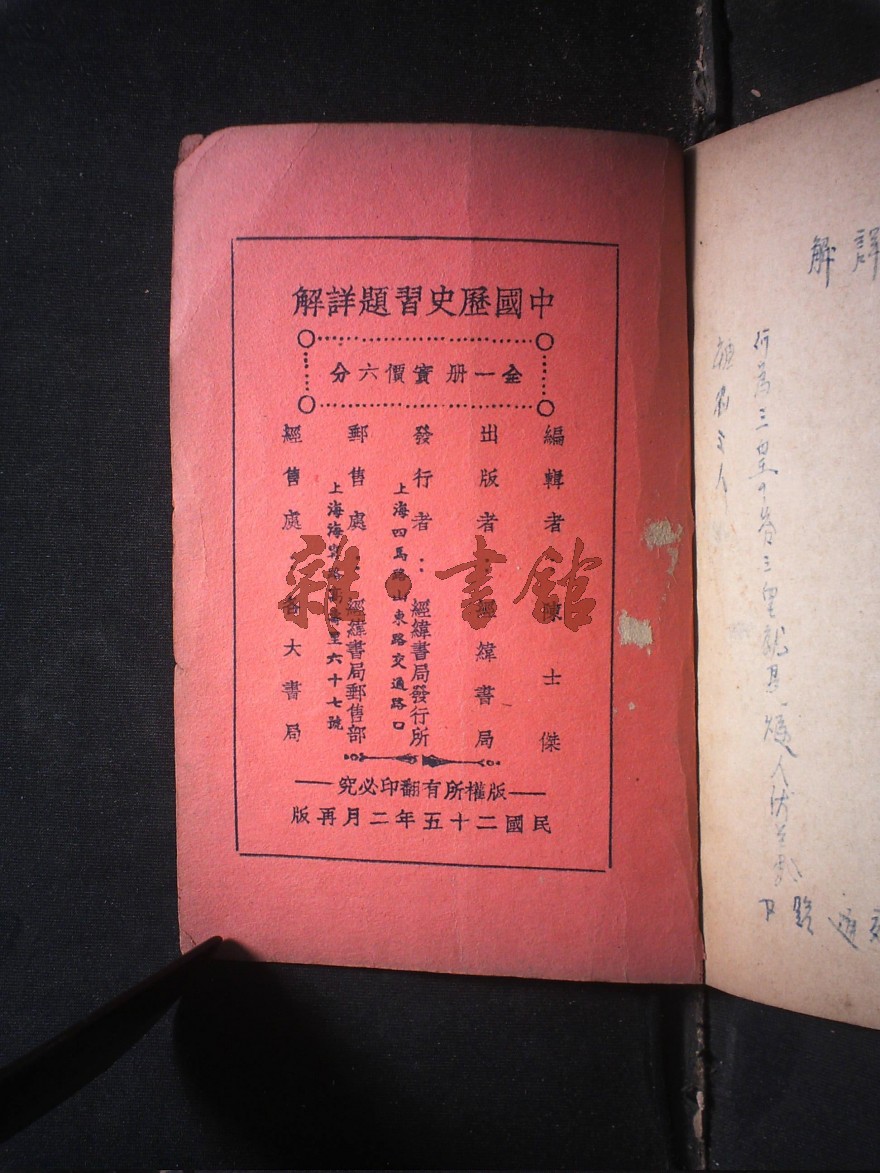 中國歷史習題詳解
全一册實價六分
編輯者:陳士傑
出版者:經緯書局
發行者:經緯書局發行所
上海四馬路山東路交通路口
郵售處:經緯書局郵售部
上海海寧路高壽里六十七號
經售處:各大書局
—版權所有翻印必究—
民國二十五年二月再版
雜·書館
詳解
何為三皇